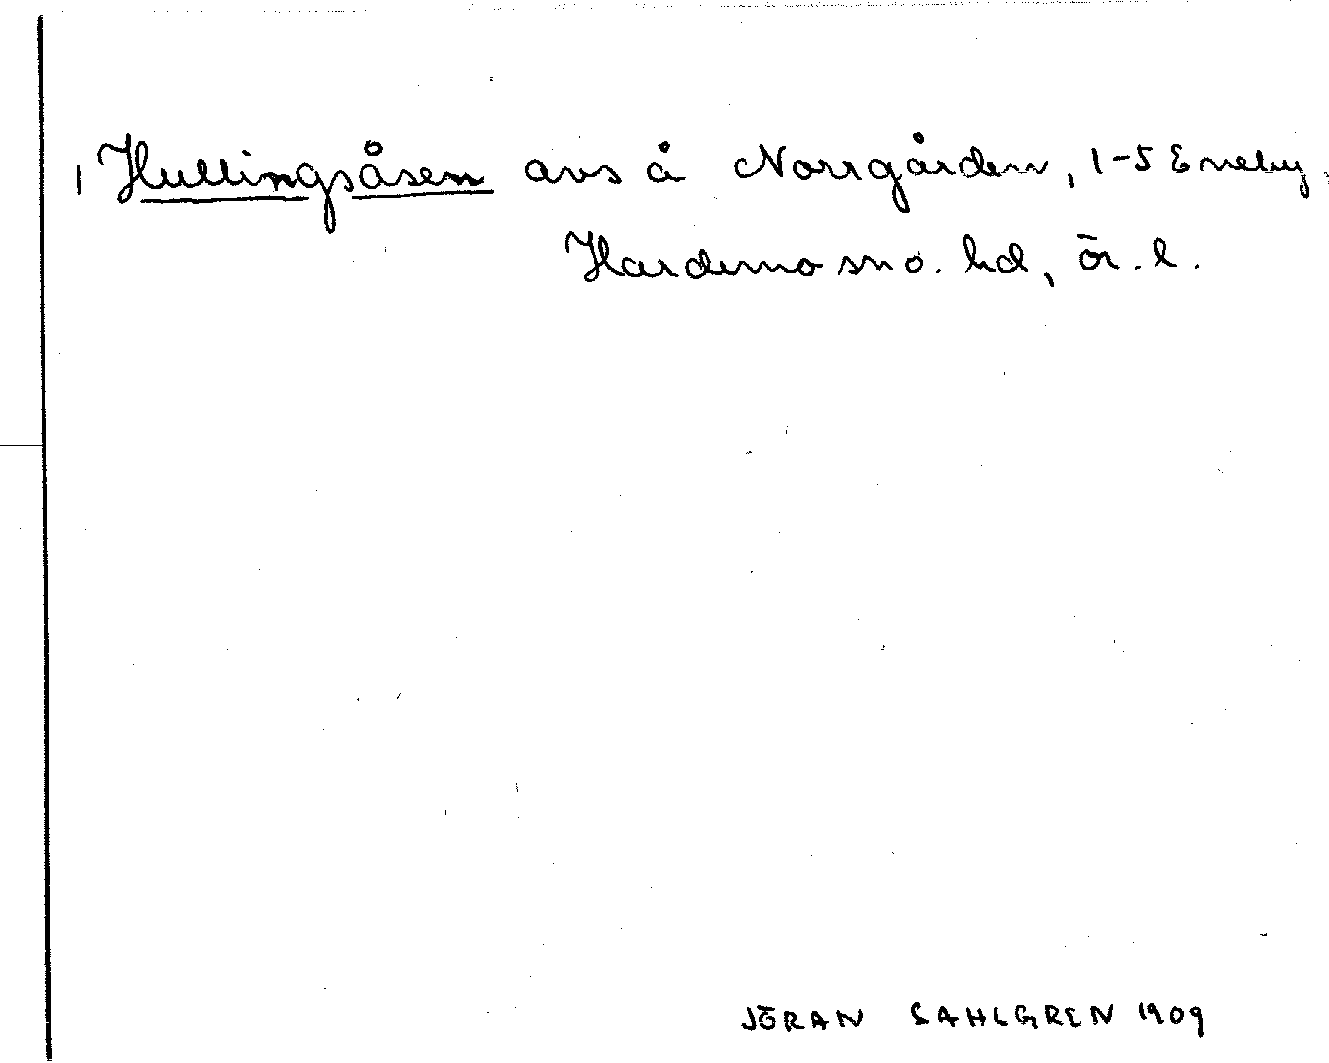 | Hullingsåsen avs å Norrgården, 1-5 Eneby,
Hardemo sn o. hd, ör. l.
JÖRAN SAHLGREN 1909